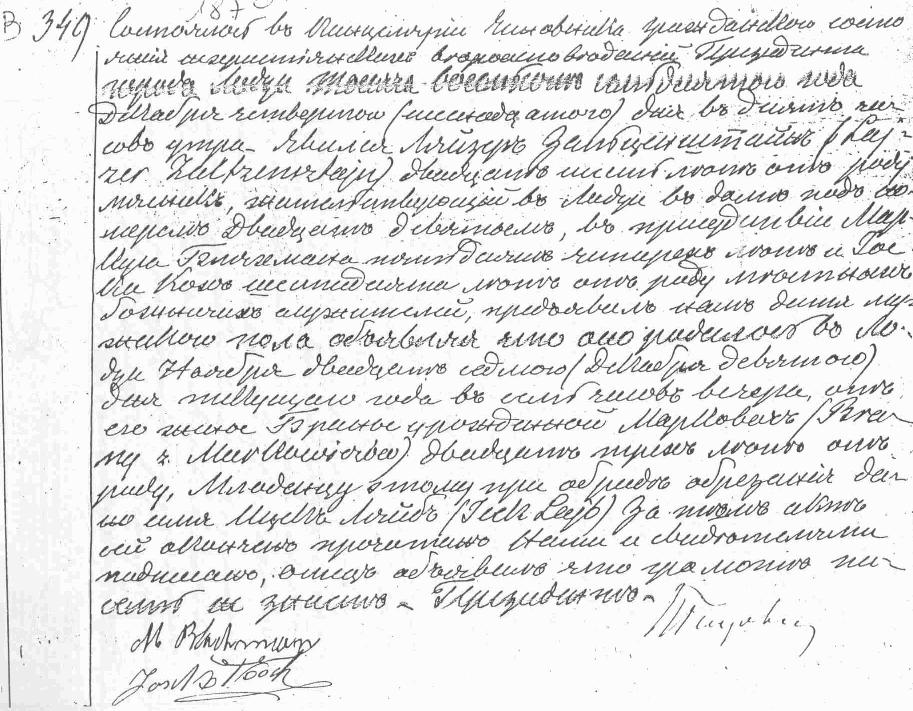 187
В 349 Состоялось въ Канцелярiи Чиновника гражданскаго состо
янiя нехристiянскихъ вѣроисповѣданiй Президента
города Лодзи тысяча восемьсотъ семьдесятого года
Декабря четвертого (шестнадцатого) дня въ девять ча-
совъ утра. Явился Лейзеръ Зальценштайнъ (Laj-
zer Zaltzensztajn) двадцать шесть лѣтъ отъ роду
жительствующiй въ Лодзи въ домѣ подъ но-
меромъ двадцать девятымъ, въ присутствiи Мар-
куса пятидесяти четырехъ лѣтъ и Iос-
ка Кохъ шестидесяти лѣтъ отъ роду мѣстныхъ
божничихъ служителей, предъявилъ намъ дитя му-
жескаго пола объявляя что оно родилось въ Ло-
дзи Ноября двадцать седьмого (Декабря девятого)
дня текущаго года въ семь часовъ вечера, отъ
его жены Браны урожденной Марковичъ (Bra-
ny z Markowiczów) двадцать трехъ лѣтъ отъ
роду, Младенцу этому при обрядѣ обрезанiя да-
но имя Ицекъ Лейбъ (Icek Lejb) За тѣмъ актъ
сей оконченъ прочитанъ Нами и свидѣтелями
подписанъ, отецъ объявилъ что грамотѣ пи-
сать не знаетъ. Президентъ.
M Blachman
Josek Koch